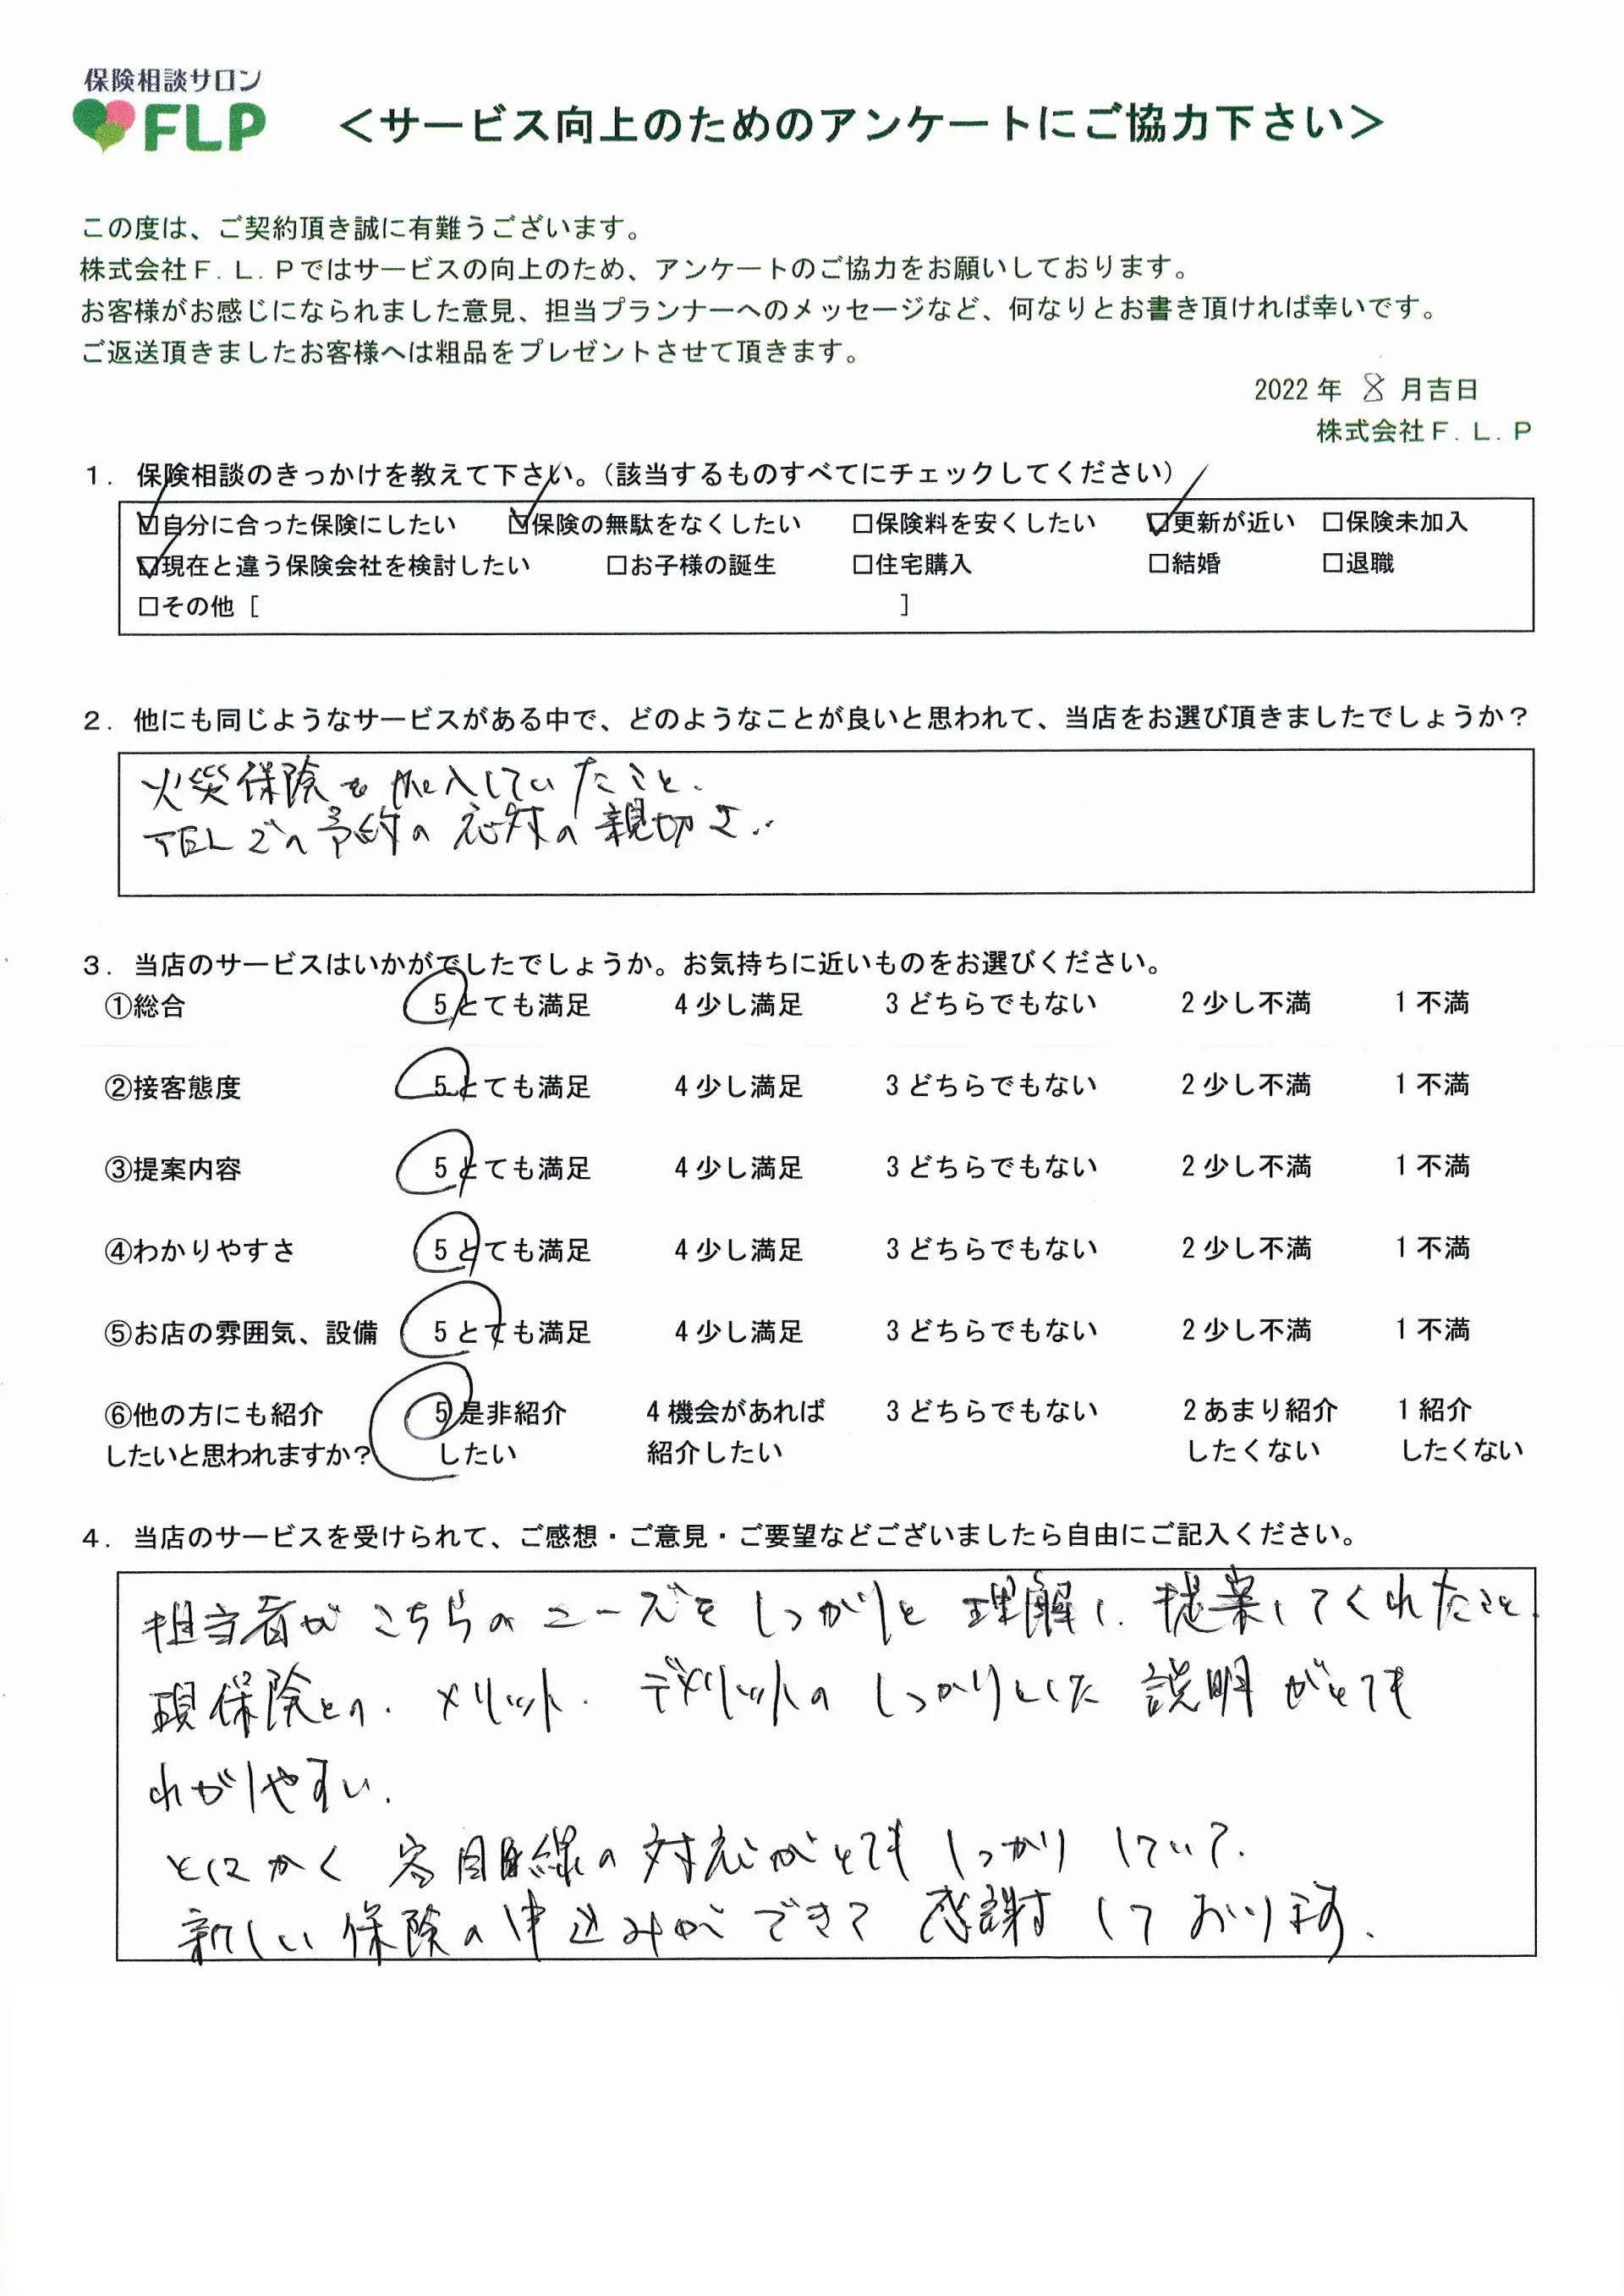 保険相談サロン
FLP
＜サービス向上のためのアンケートにご協力下さい＞
この度は、ご契約頂き誠に有難うございます。
株式会社Ｆ．Ｌ．Ｐではサービスの向上のため、アンケートのご協力をお願いしております。
お客様がお感じになられました意見、担当プランナーへのメッセージなど、何なりとお書き頂ければ幸いです。
ご返送頂きましたお客様へは粗品をプレゼントさせて頂きます。
2022 年 8 月吉日
株式会社Ｆ．Ｌ．Ｐ
１．保険相談のきっかけを教えて下さい。（該当するものすべてにチェックしてください）
☑自分に合った保険にしたい ☑保険の無駄をなくしたい □保険料を安くしたい ☑更新が近い □保険未加入
☑現在と違う保険会社を検討したい □お子様の誕生 □住宅購入 □結婚 □退職
□その他［ ］
２．他にも同じようなサービスがある中で、どのようなことが良いと思われて、当店をお選び頂きましたでしょうか？
火災保険を加入していたこと.
TELでの予約の応対の親切さ..
３．当店のサービスはいかがでしたでしょうか。お気持ちに近いものをお選びください。
①総合 5 とても満足 4 少し満足 3 どちらでもない 2 少し不満 1 不満
②接客態度 5 とても満足 4 少し満足 3 どちらでもない 2 少し不満 1 不満
③提案内容 5 とても満足 4 少し満足 3 どちらでもない 2 少し不満 1 不満
④わかりやすさ 5 とても満足 4 少し満足 3 どちらでもない 2 少し不満 1 不満
⑤お店の雰囲気、設備 5 とても満足 4 少し満足 3 どちらでもない 2 少し不満 1 不満
⑥他の方にも紹介 5 是非紹介 4 機会があれば 3 どちらでもない 2 あまり紹介 1 紹介
したいと思われますか？ したい 紹介したい したくない したくない
４．当店のサービスを受けられて、ご感想・ご意見・ご要望などございましたら自由にご記入ください。
担当者がこちらのニーズをしっかりと理解し、提案してくれたこと.
現保険との、メリット、デメリットのしっかりとした説明がとても
わかりやすい.
とにかく客目線の対応がとてもしっかりしていて.
新しい保険の申込みができて感謝しております.